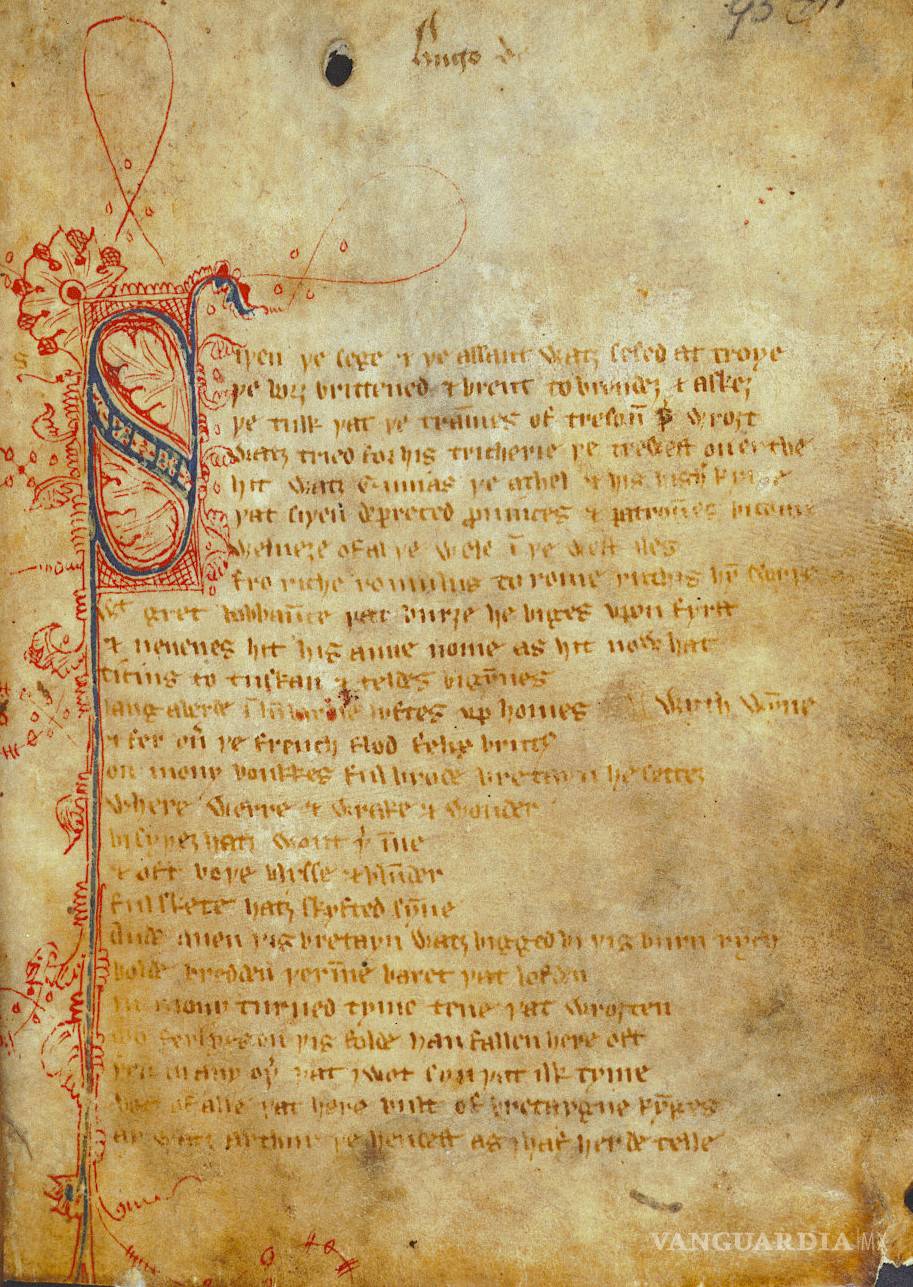 Hugo de
Siþen þe sege & þe assaut watz sesed at troye
þe borȝ brittened & brent to brondeȝ & askeȝ
þe tulk þat þe tra̅mes of treson̅ þ̲ wroȝt
watz tried for his tricherie þe trewest on erthe
hit watz Ennias þe athel & his highe kynde
þat siþen depreced prouinces & patrou̅es bicome
welneȝe of al þe wele i̅ þe west iles
fro riche romulus to rome ricchis hy̅ swyþe
wt gret bobbau̅ce þat burȝe he biges vpon fyrst
& neuenes hit his aune nome as hit now hat
ticius to tuskan & teldes bigy̅nes
langaberde i̅ lumbardie lyftes vp homes wyth wy̅ne
& fer ou̅ þe french flod felix brutꝰ
on mony bonkkes ful brode bretayn he settez
where werre & wrake & wonder
bi syþez hatz wont þ̲ i̅ne
& oft boþe blysse & blu̅der
ful skete hatz skyfted sy̅ne
Ande quen þis bretayn watz bigged bi þis burn rych
bolde bredden þeri̅ne baret þat lofden
in mony turned tyme tene þat wroȝten
mo ferlyes on þis folde han fallen here oft
þen in any oþ̲ þat I wot syn þat ilk tyme
bot of alle þat here bult of bretaygne ky̅ges
ay watz Arthur þe hendest as I haf herde telle
VANGUARDIA|MX